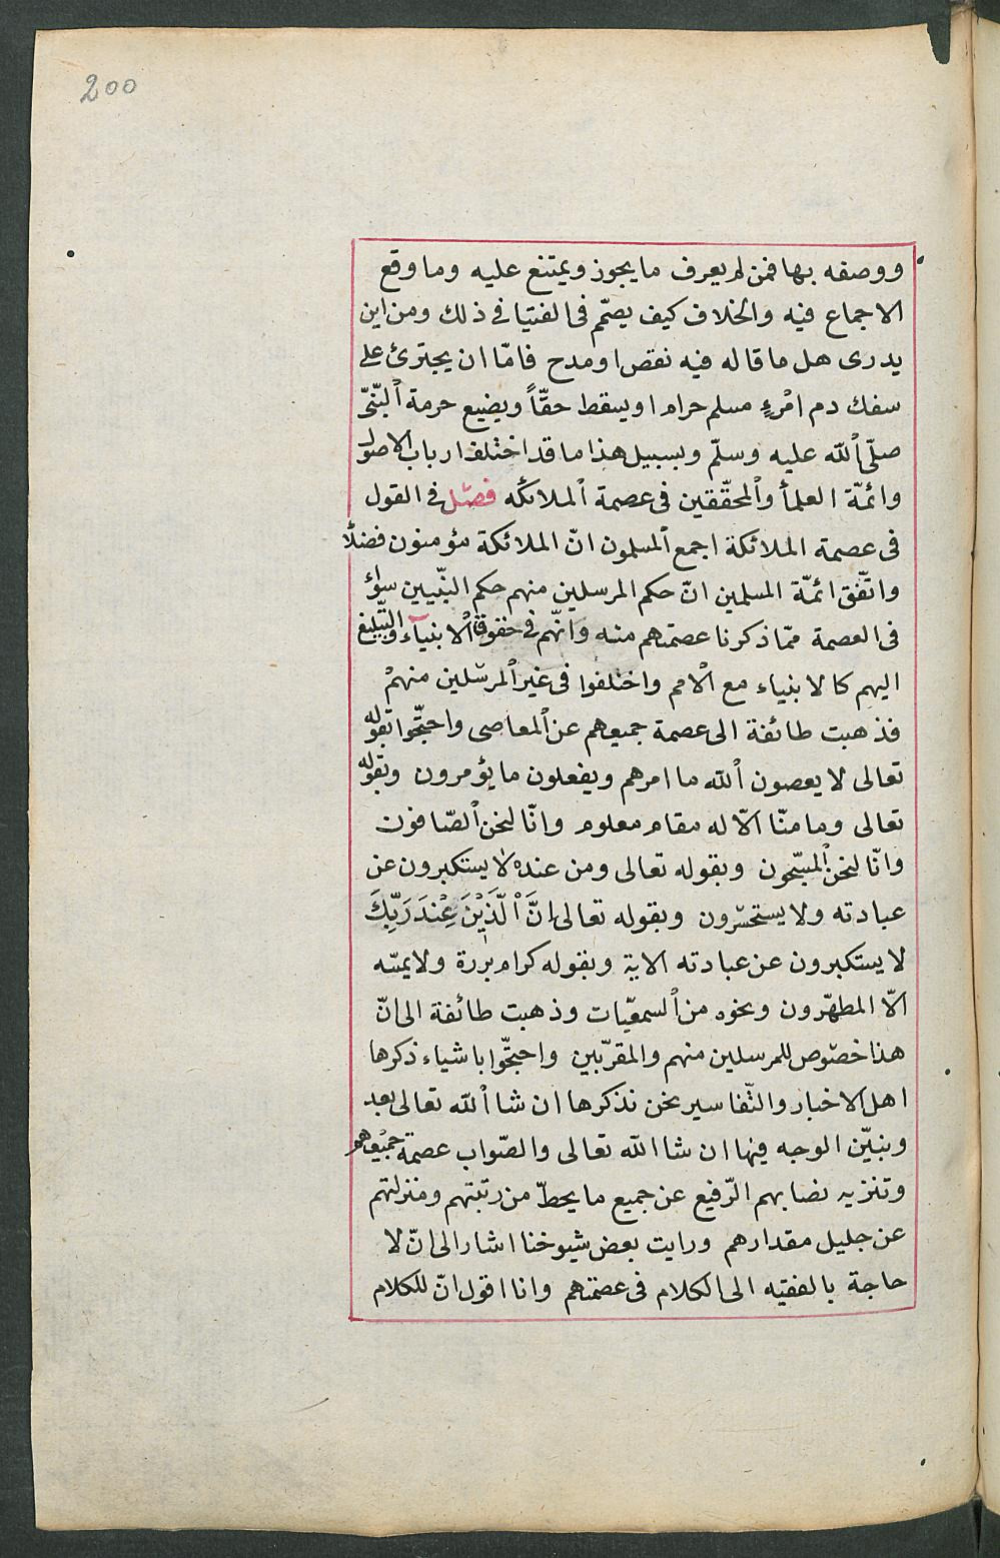 200
ووصفه بها فمن لم يعرف ما يجوز ويمتنع عليه وما وقع
الاجماع فيه والخلاف كيف يصمّم فى الفتيا فى ذلك ومن اين
يدرى هل ما قاله فيه نقص او مدح فامّا ان يجترئ على
سفك دم امْرءٍ مسلم حرام او يسقط حقّاً ويضيع حرمة النّبىّ
صلّى الله عليه وسلّم وبسبيل هذا ما قد اختلف ارباب الاصول
وائمّة العلمأ والمحقّقين فى عصمة الملائكه فصل فى القول
فى عصمة الملائكة اجمع المسلمون انّ الملائكة مؤمنون فضلًا
واتّفق ائمّة المسلمين انّ حكم المرسلين منهم حكم النّبيين سواؤ
فى العصمة ممّا ذكرنا عصمتهم منه وانّهم فى حقوق الانبيآء والتّبليغ
اليهم كالانبياء مع الامم واختلفوا فى غير المرسلين منهمْ
فذهبت طائفة الى عصمة جميعهم عن المعاصى واحتجّوا بقوله
تعالى لا يعصون الله ما امرهم ويفعلون ما يؤمرون وبقوله
تعالى وما منّا الّا له مقام معلوم وانّا لنحن الصّافون
وانّا لنحن المسبّحون وبقوله تعالى ومن عنده لا يستكبرون عن
عبادته ولا يستحسرون وبقوله تعالى انَّ الَّذَيْنَ عِنْدَ رَبِّكَ
لا يستكبرون عن عبادته الاية وبقوله كرام بررة ولا يمسّه
الّا المطهّرون ونحوه من السمعيّات وذهبت طائفة الى انّ
هذا خصوص للمرسلين منهم والمقرّبين واحتجّوا باشياء ذكرها
اهل الاخبار والتّفاسير نحن نذكرها ان شا الله تعالى بعد
ونبيّن الوجه فيها ان شا الله تعالى والصّواب عصمة جميعهم
وتنزيه نصابهم الرّفيع عن جميع ما يحطّ من رتبتهم ومنزلتهم
عن جليل مقدارهم ورايت بعض شيوخنا اشار الى انّ لا
حاجة بالفقيه الى الكلام فى عصمتهم وانا اقول انّ للكلام